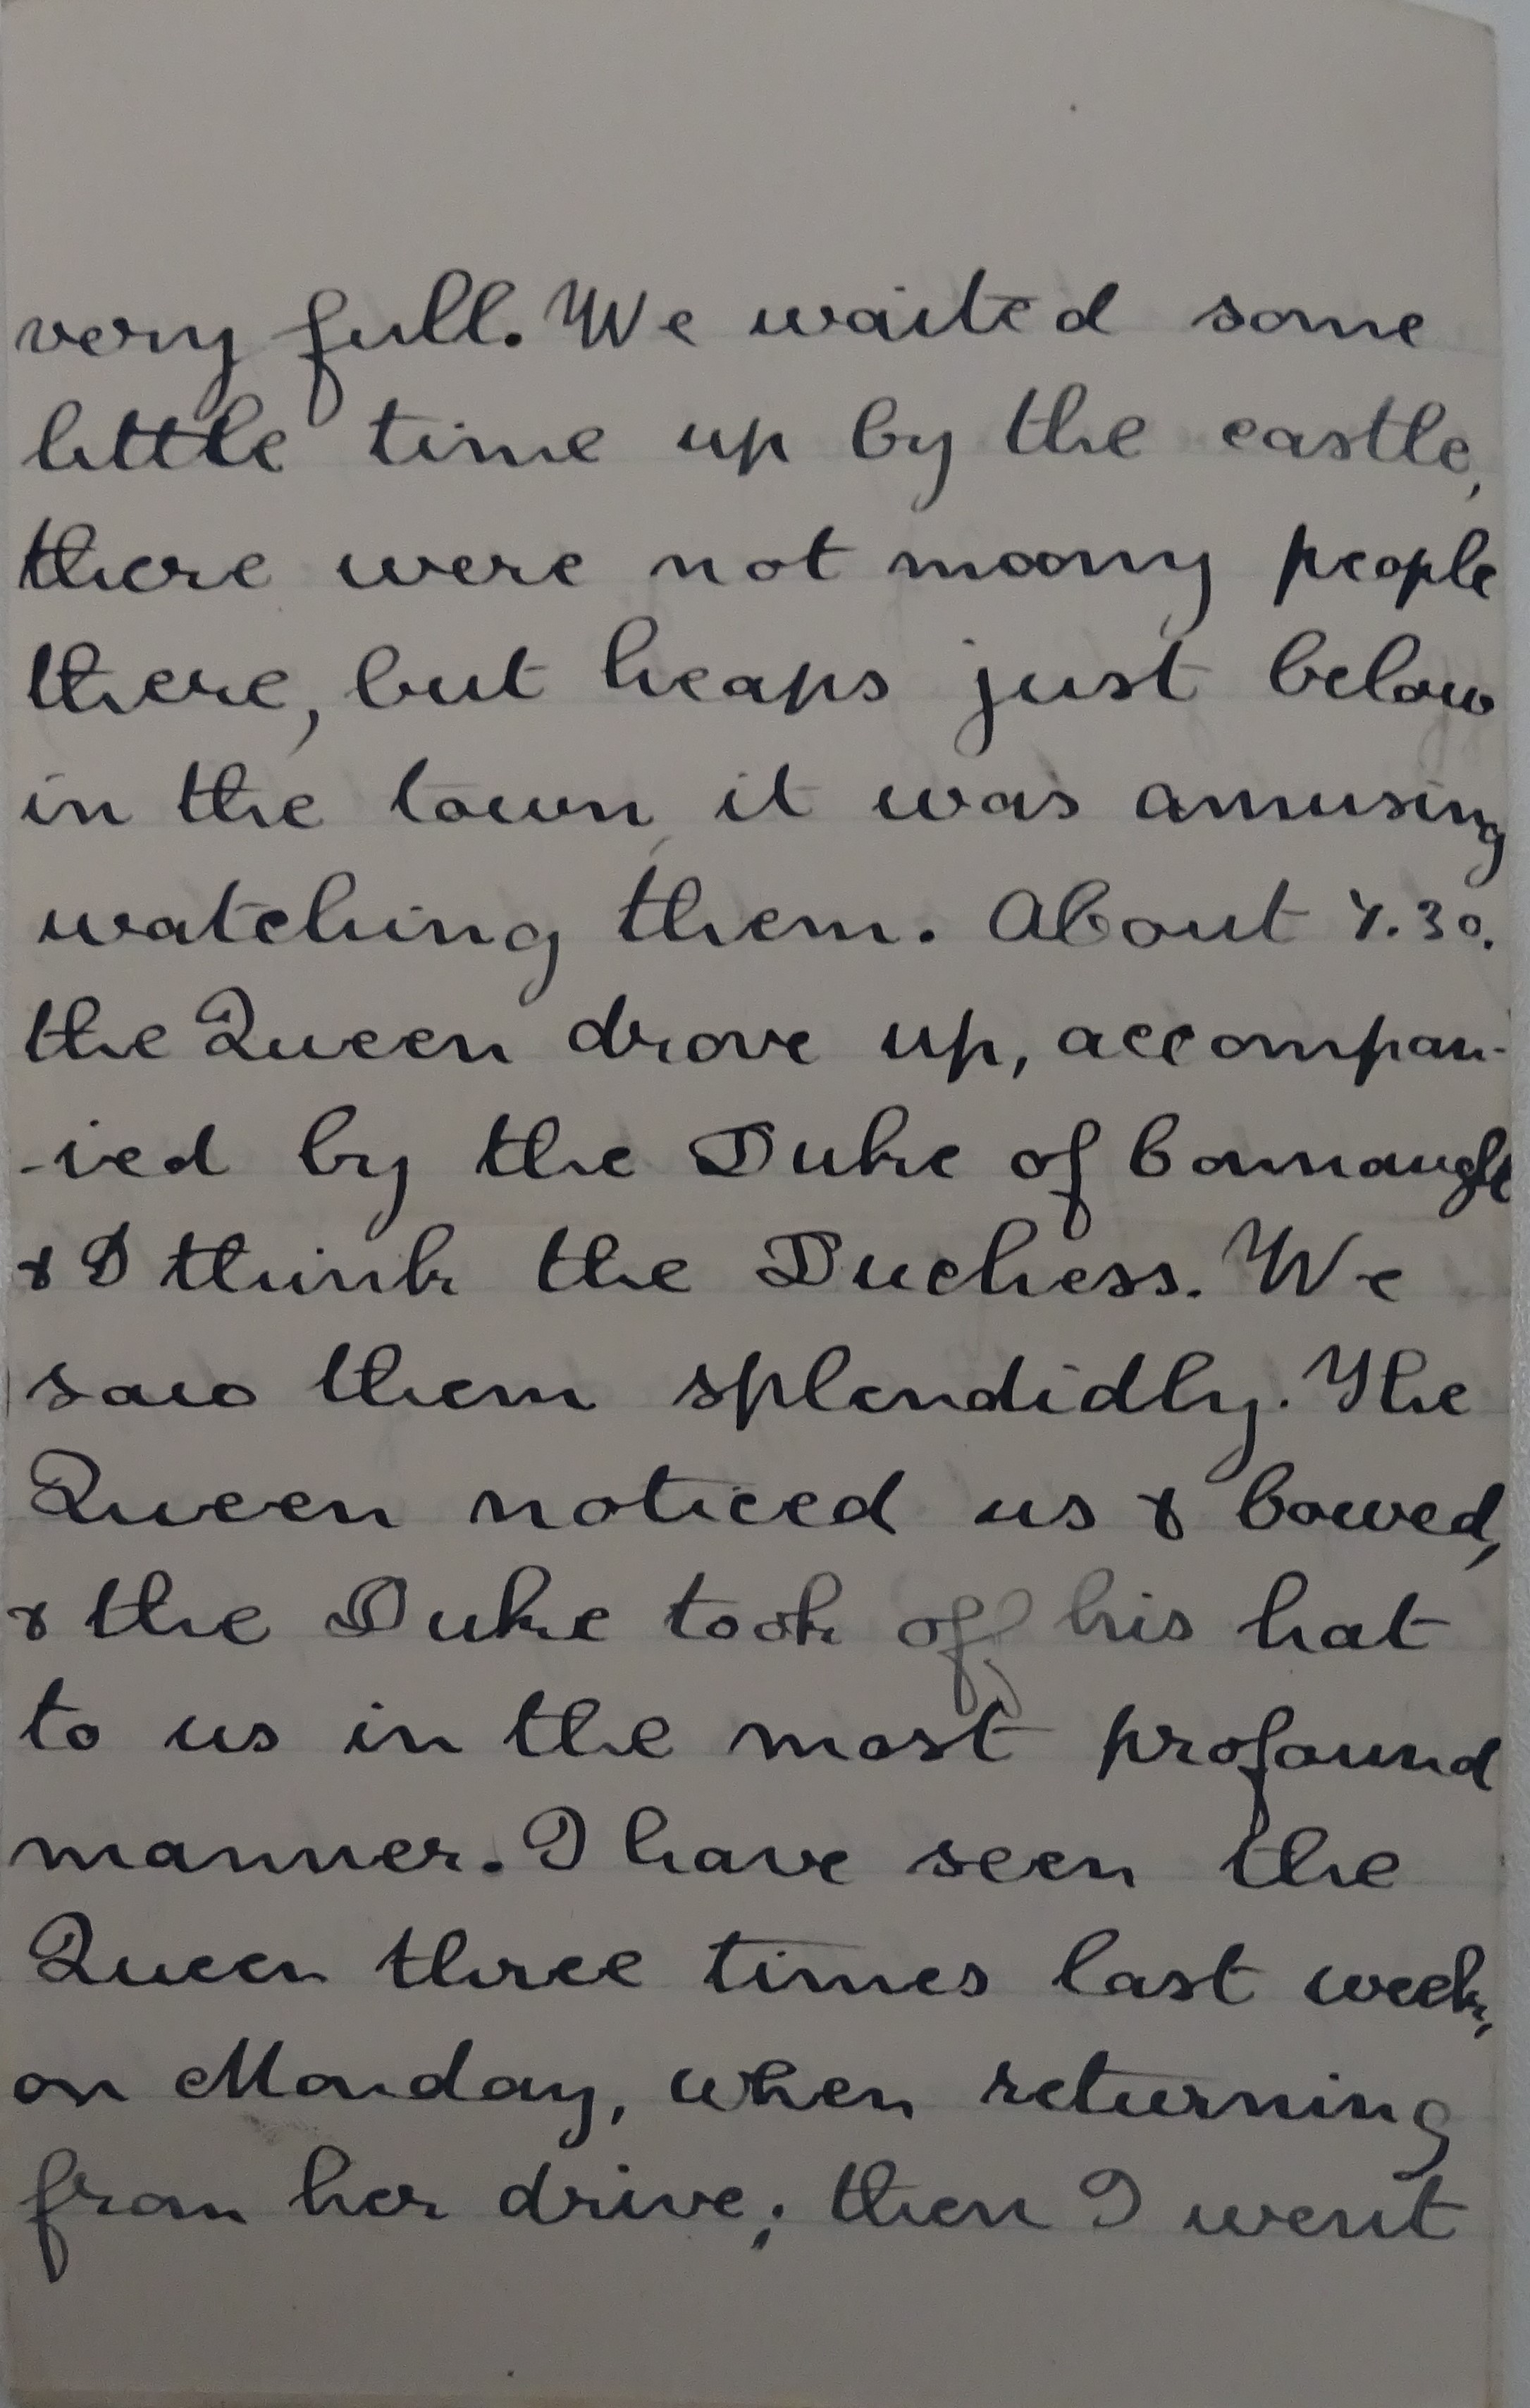 very full. We waited some
little time up by the castle,
there were not many people
there, but heaps just below
in the town, it was amusing
watching them. About 7.30.
the Queen drove up, accompan-
-ied by the Duke of Connaught
& I think the Duchess. We
saw them splendidly. The
Queen noticed us & bowed,
& the Duke took off his hat
to us in the most profound
manner. I have seen the
Queen three times last week,
on Monday, when returning
from her drive; then I went